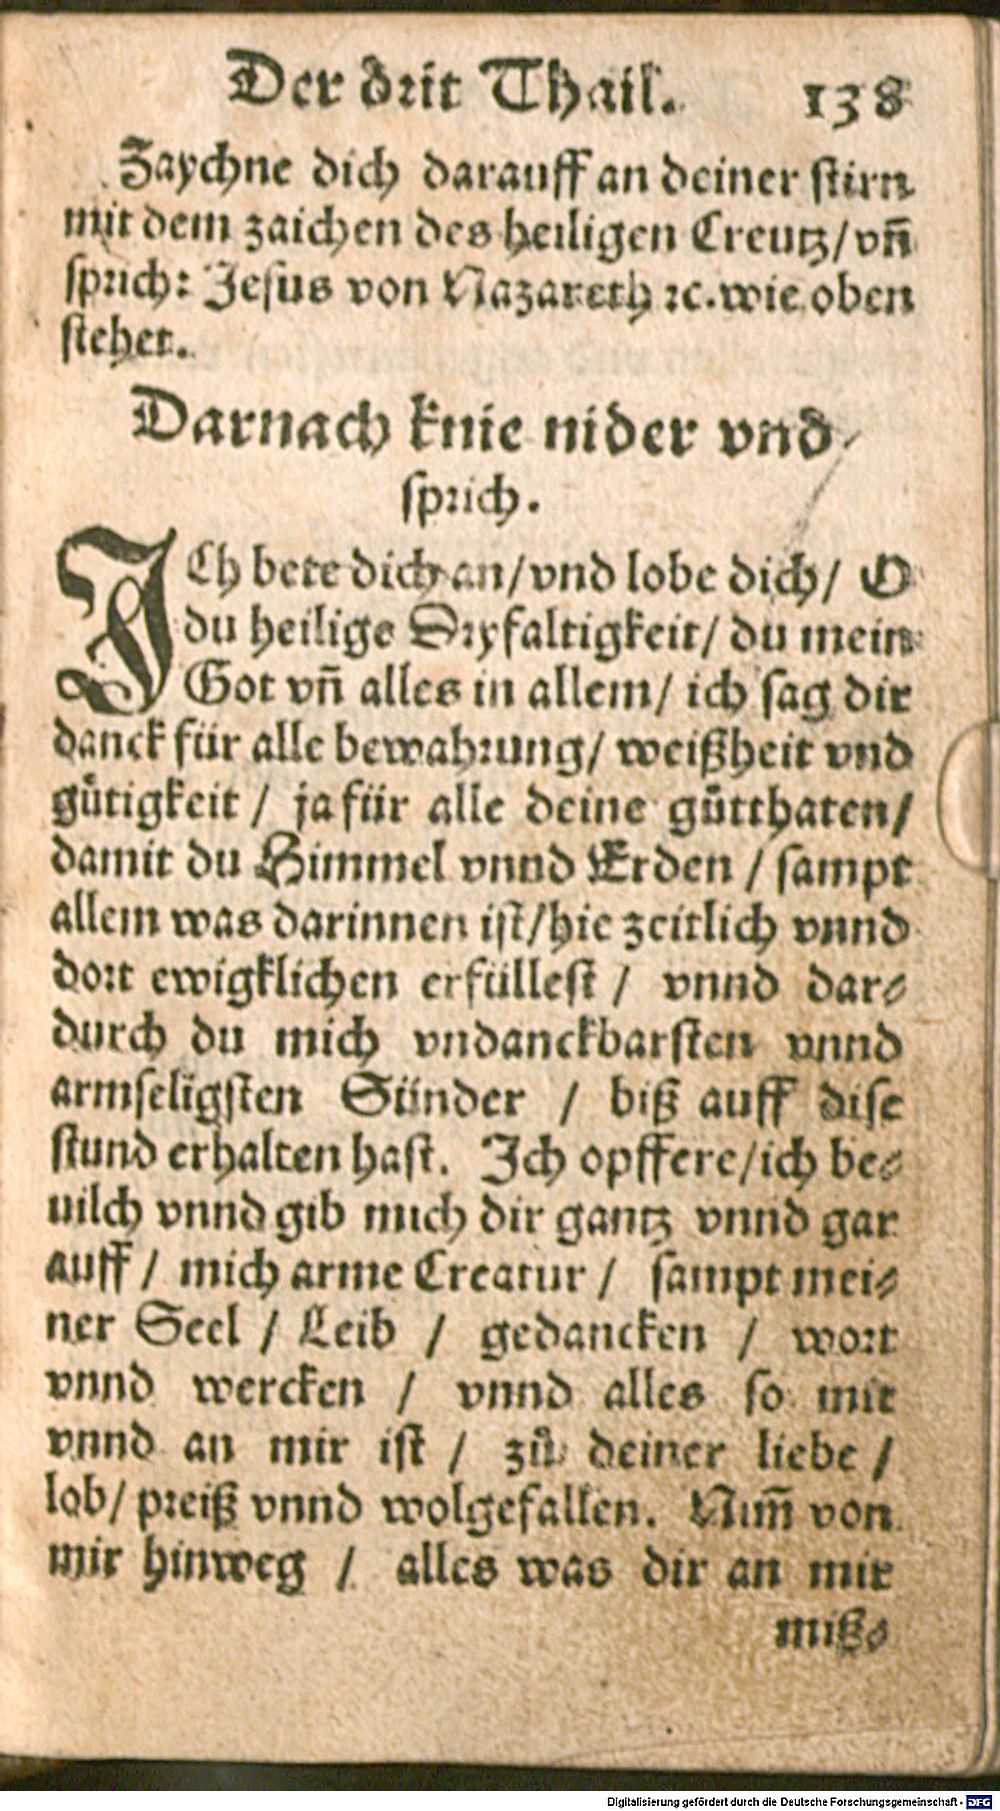 Der drit Thail. 138
Zaychne dich darauff an deiner stirn
mit dem zaichen des heiligen Creutz/vn̄
sprich: Jesus von Nazareth ꝛc. wie oben
stehet.
Darnach knie nider vnd
sprich.
ICh bete dich an/vnd lobe dich/ O
du heilige Dryfaltigkeit/ du mein
Got vn̄ alles in allem/ ich sag dir
danck für alle bewahrung/ weißheit vnd
gütigkeit / ja für alle deine gůtthaten/
damit du Himmel vnnd Erden / sampt
allem was darinnen ist/hie zeitlich vnnd
dort ewigklichen erfüllest / vnnd dar⸗
durch du mich vndanckbarsten vnnd
armseligsten Sünder / biß auff dise
stund erhalten hast. Ich opffere/ich be⸗
uilch vnnd gib mich dir gantz vnnd gar
auff / mich arme Creatur / sampt mei⸗
ner Seel / Leib / gedancken / wort
vnnd wercken / vnnd alles so mit
vnnd an mir ist / zů deiner liebe /
lob/ preiß vnnd wolgefallen. Nim̄ von
mir hinweg / alles was dir an mir
miß⸗
Digitalisierung gefördert durch die Deutsche Forschungsgemeinschaft - DFG